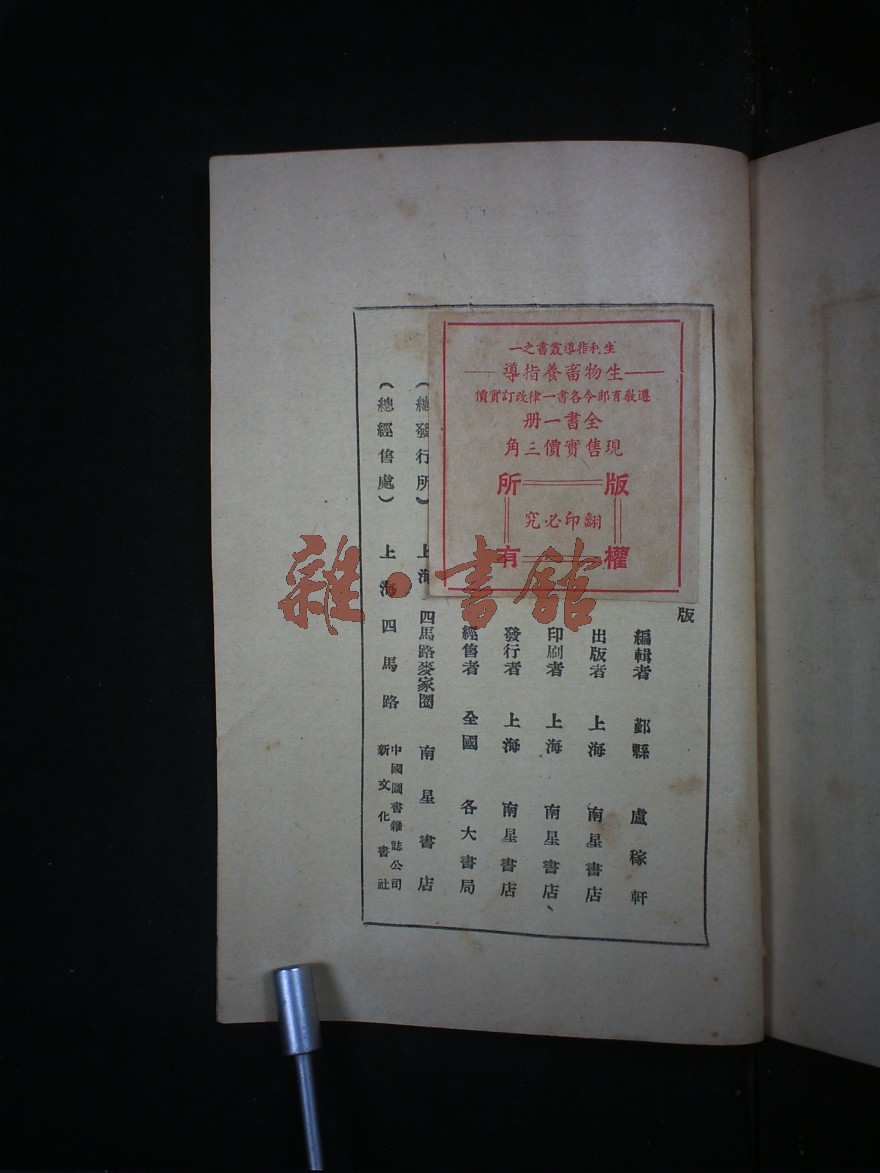 生利指導叢書之一
生物畜養指導
遵教育部令各書一律改訂實價
全書一册
現售實價三角
版權所有
翻印必究
版
編輯者 鄞縣 盧稼軒
出版者 上海 南星書店
印刷者 上海 南星書店、
發行者 上海 南星書店
經售者 全國 各大書局
(總發行所) 上海 四馬路麥家圈 南星書店
(總經售處) 上海四馬路 中國圖書雜誌公司
新文化書社
雜·書館